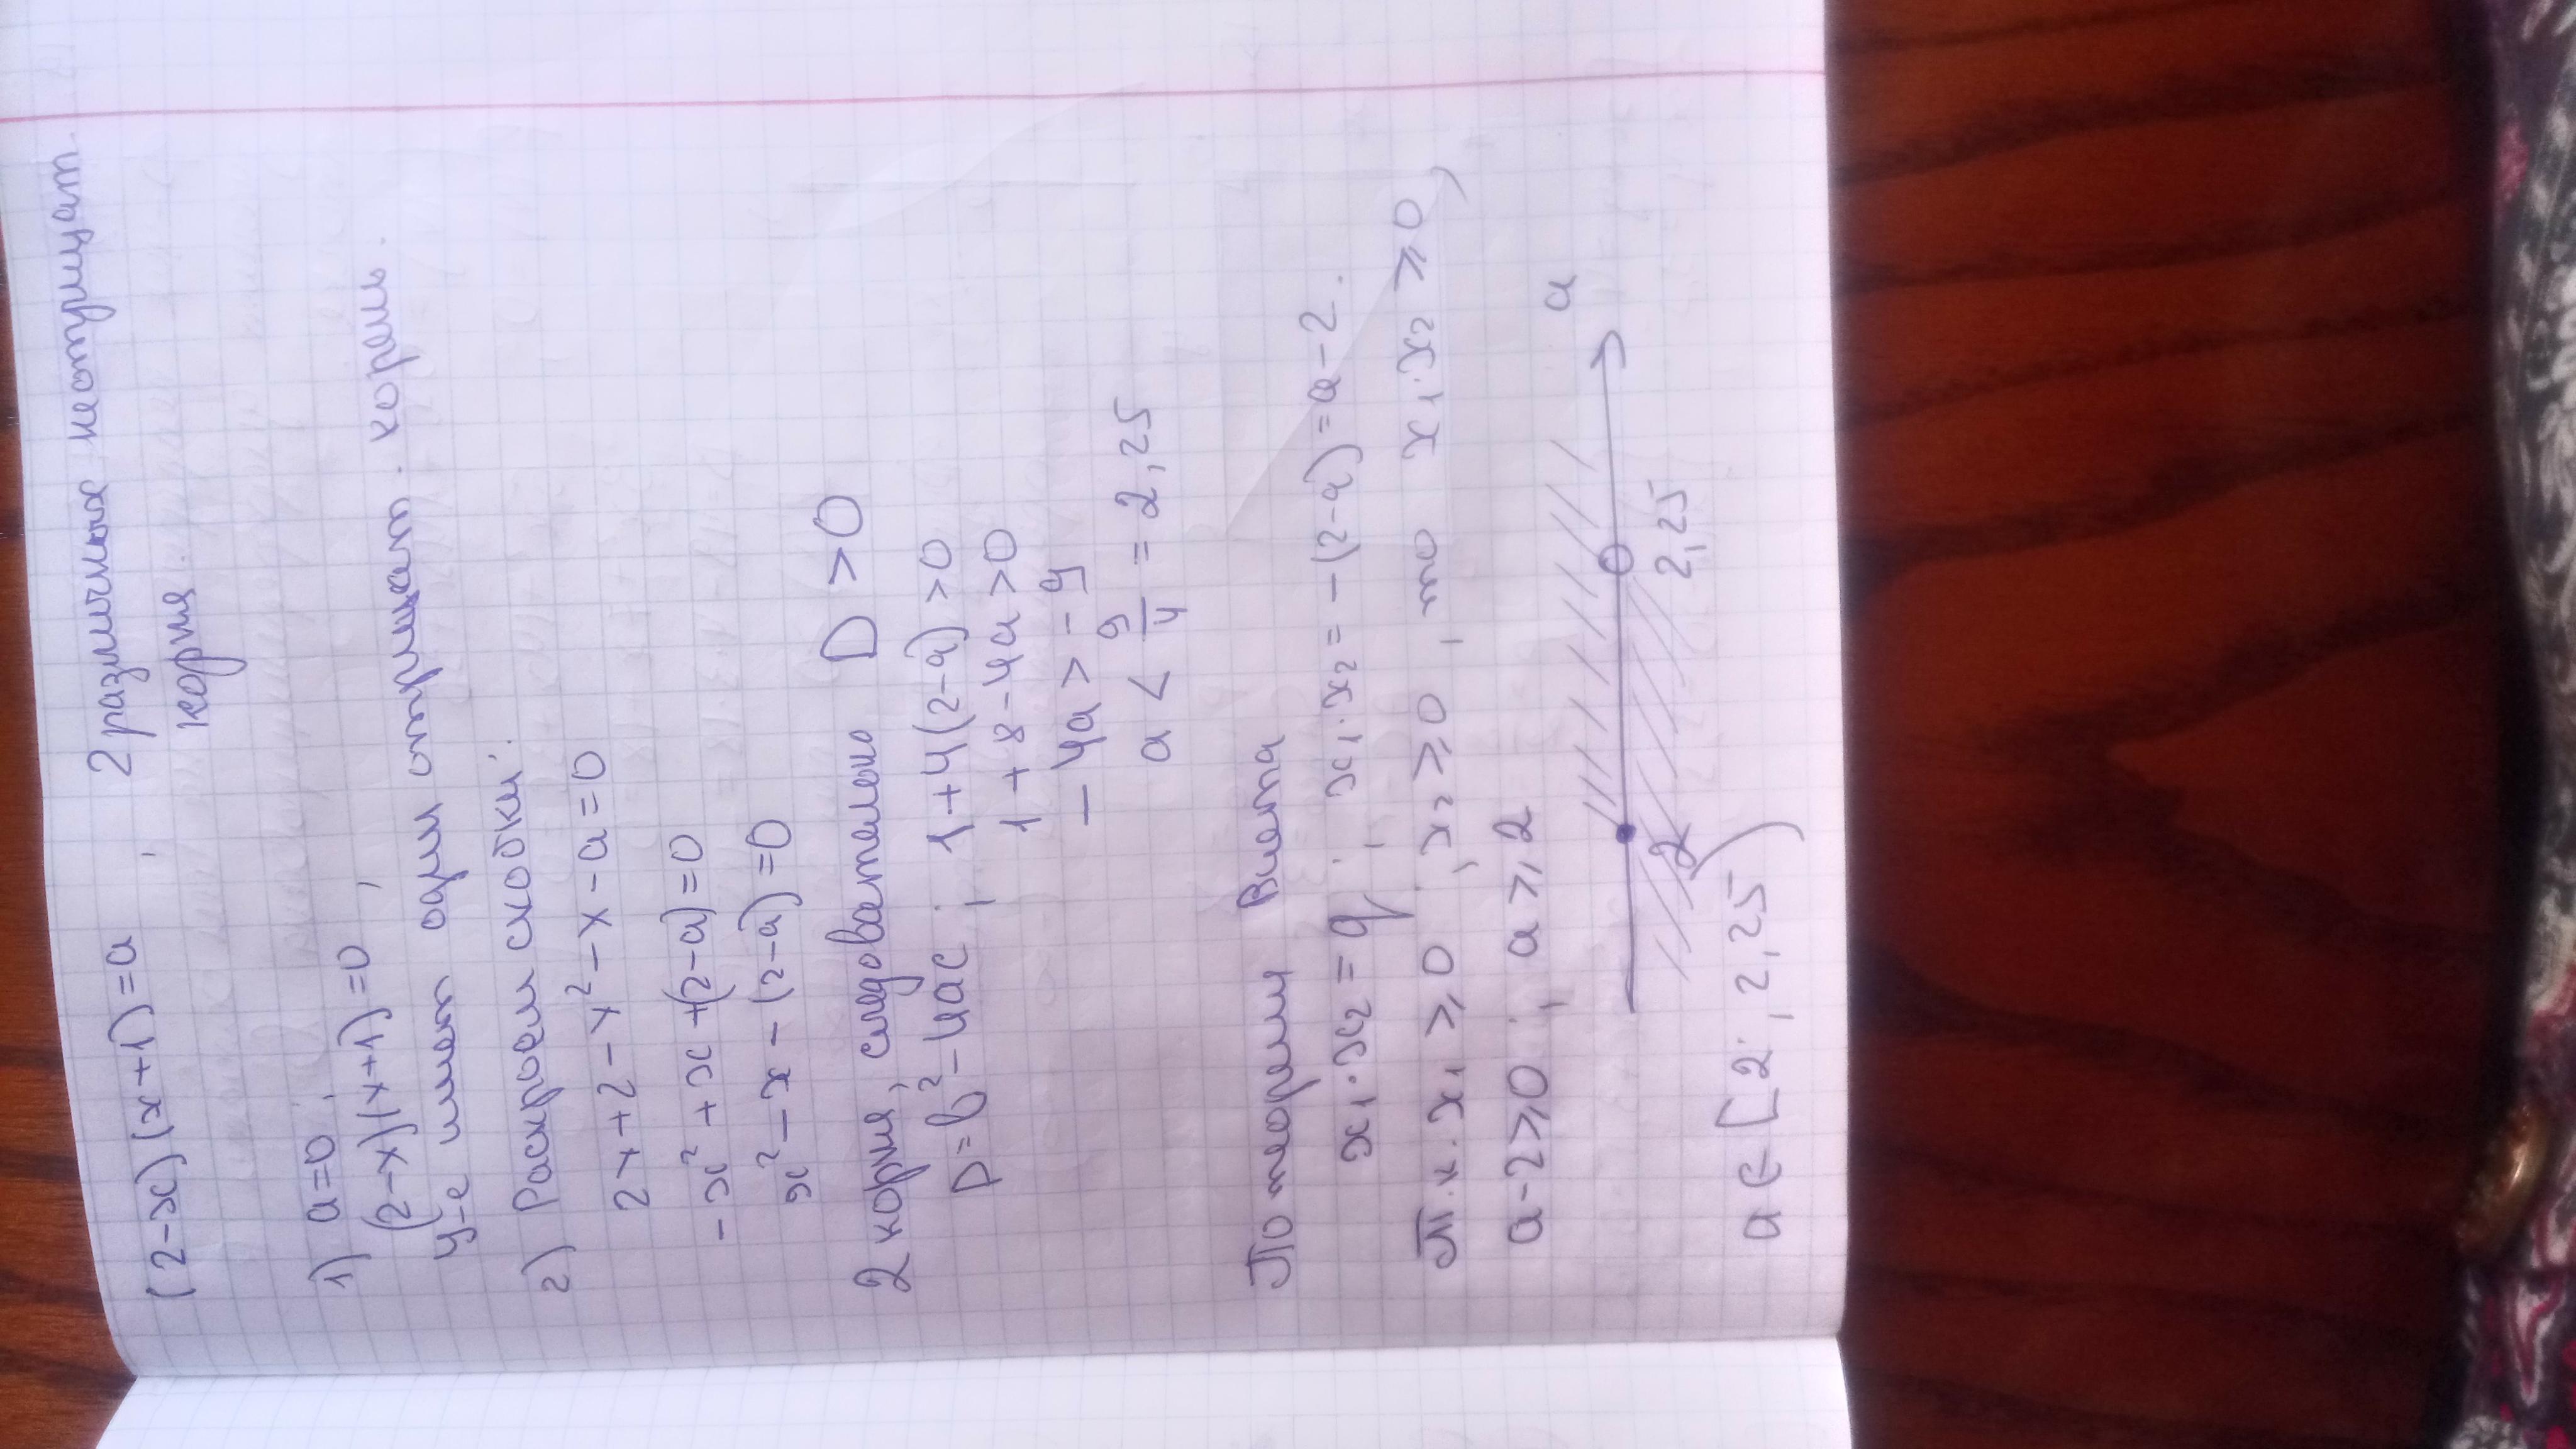 (2-x)(x+1)=a , 2 различных неотрицат.
корня.
1) a=0;
(2-x)(x+1)=0,
у-е имеет один отрицат. корень.
2) Раскроем скобки:
2x+2-x²-x-a=0
-x²+x+(2-a)=0
x²-x-(2-a)=0
2 корня, следовательно D>0
D=b²-4ac; 1+4(2-a)>0
1+8-4a>0
-4a>-9
a<9/4=2,25
По теореме Виета
x₁·x₂=q; x₁·x₂=-(2-a)=a-2.
Т.к. x₁⩾0; x₂⩾0, то x₁·x₂⩾0,
a-2⩾0; a⩾2
a
2 2,25
a∈[2; 2,25)